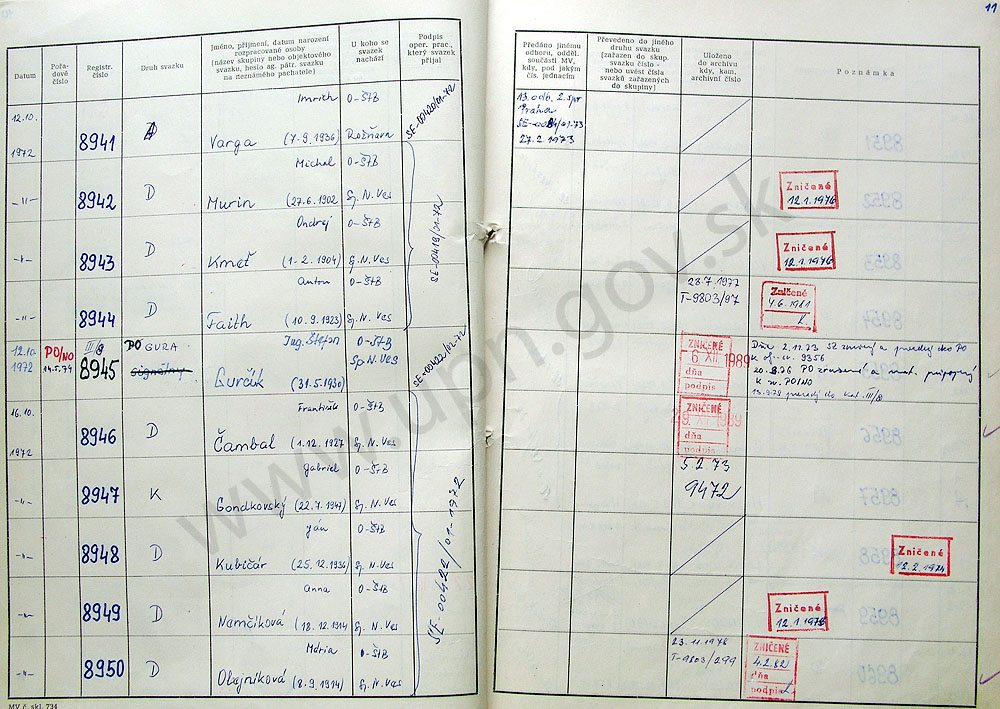 11
Datum
Pořa-
dové
číslo
Registr.
číslo
Druh svazku
Jméno, příjmení, datum narození
rozpracované osoby
(název skupiny nebo objektového
svazku, heslo ag. pátr. svazku
na neznámého pachatele)
U koho se
svazek
nachází
Podpis
oper. prac.,
který svazek
přijal
Předáno jinému
odboru, odděl.
součásti MV,
kdy, pod jakým
čís. jednacím
Převedeno do jiného
druhu svazku
(zařazen do skup.
svazku číslo -
nebo uvést čísla
svazků zařazených
do skupiny)
Uloženo
do archivu
kdy, kam,
archivní číslo
Poznámka
12.10.
1972
8941
Imrich
Varga (7.9.1936)
O-ŠtB
Rožňava
SE-00420/01-72
13. odb. 2. spr
Praha
27.2.1973
-"-
8942
D
Michal
Murin (27.6.1902
O-ŠtB
Sp. N. Ves
SE-00419/01-72
Zničené
12.1.1976
-"-
8943
D
Ondrej
Kmeť (1.2.1904)
O-ŠtB
Sp. N. Ves
Zničené
12.1.1976
-"-
8944
D
Anton
Faith (10.9.1923)
O-ŠtB
Sp. N. Ves
28.7.1977
T-9803/97
Zničené
4.6.1981
12.10.
1972
PO/NO
14.5.79
III/B
8945
PO GURA
Signálny
Ing. Štefan
Gurčík (31.5.1930)
O-ŠTB
Sp N. Ves
SE-00422/01-72
ZNIČENÉ
6 XII 1989
dňa
podpis
Dňa 2.11.73
9356
16.10.
1972
8946
D
František
Čambal (1.12.1927
O-ŠtB
Sp. N. Ves
SE-00422/01-1972
ZNIČENÉ
dňa
podpis
-"-
8947
K
Gabriel
Gondkovský (22.7.1947)
O-ŠtB
Sp. N. Ves
5 2 73
9472
-"-
8948
D
Ján
Kubičár (25.12.1936)
O-ŠtB
Sp. N. Ves
Zničené
12.2.1974
-"-
8949
D
Anna
Nemčíková (18.12.1914
O-ŠtB
Sp. N. Ves
Zničené
12.1.1976
-"-
8950
D
Mária
Olejníková (8.9.1914)
O-ŠtB
Sp. N. Ves
23.11.1978
T-9803/299
ZNIČENÉ
4.2.82
dňa
podpis
MV č. skl. 734
www.upn.gov.sk